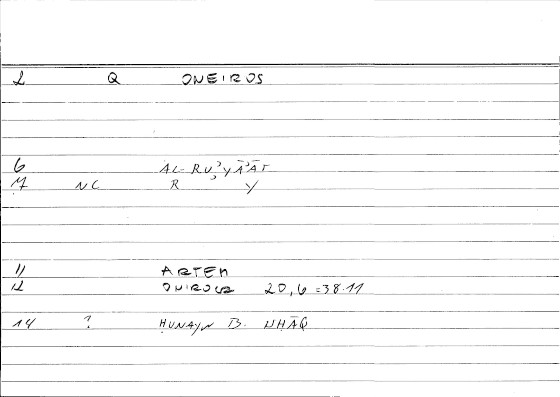 2 Q ONEIROS
6 AL-RUʾYĀʾĀT
7 NC R Y
11 ARTEM
12 ONIROCR 20,6=38.11
14 ? ḤUNAYN B. ISḤĀQ